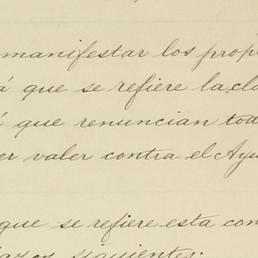 manifestar los prop
á que se refiere la cla
que renuncian tod
er valer contra el Ayu
que se refiere esta con
siguientes: